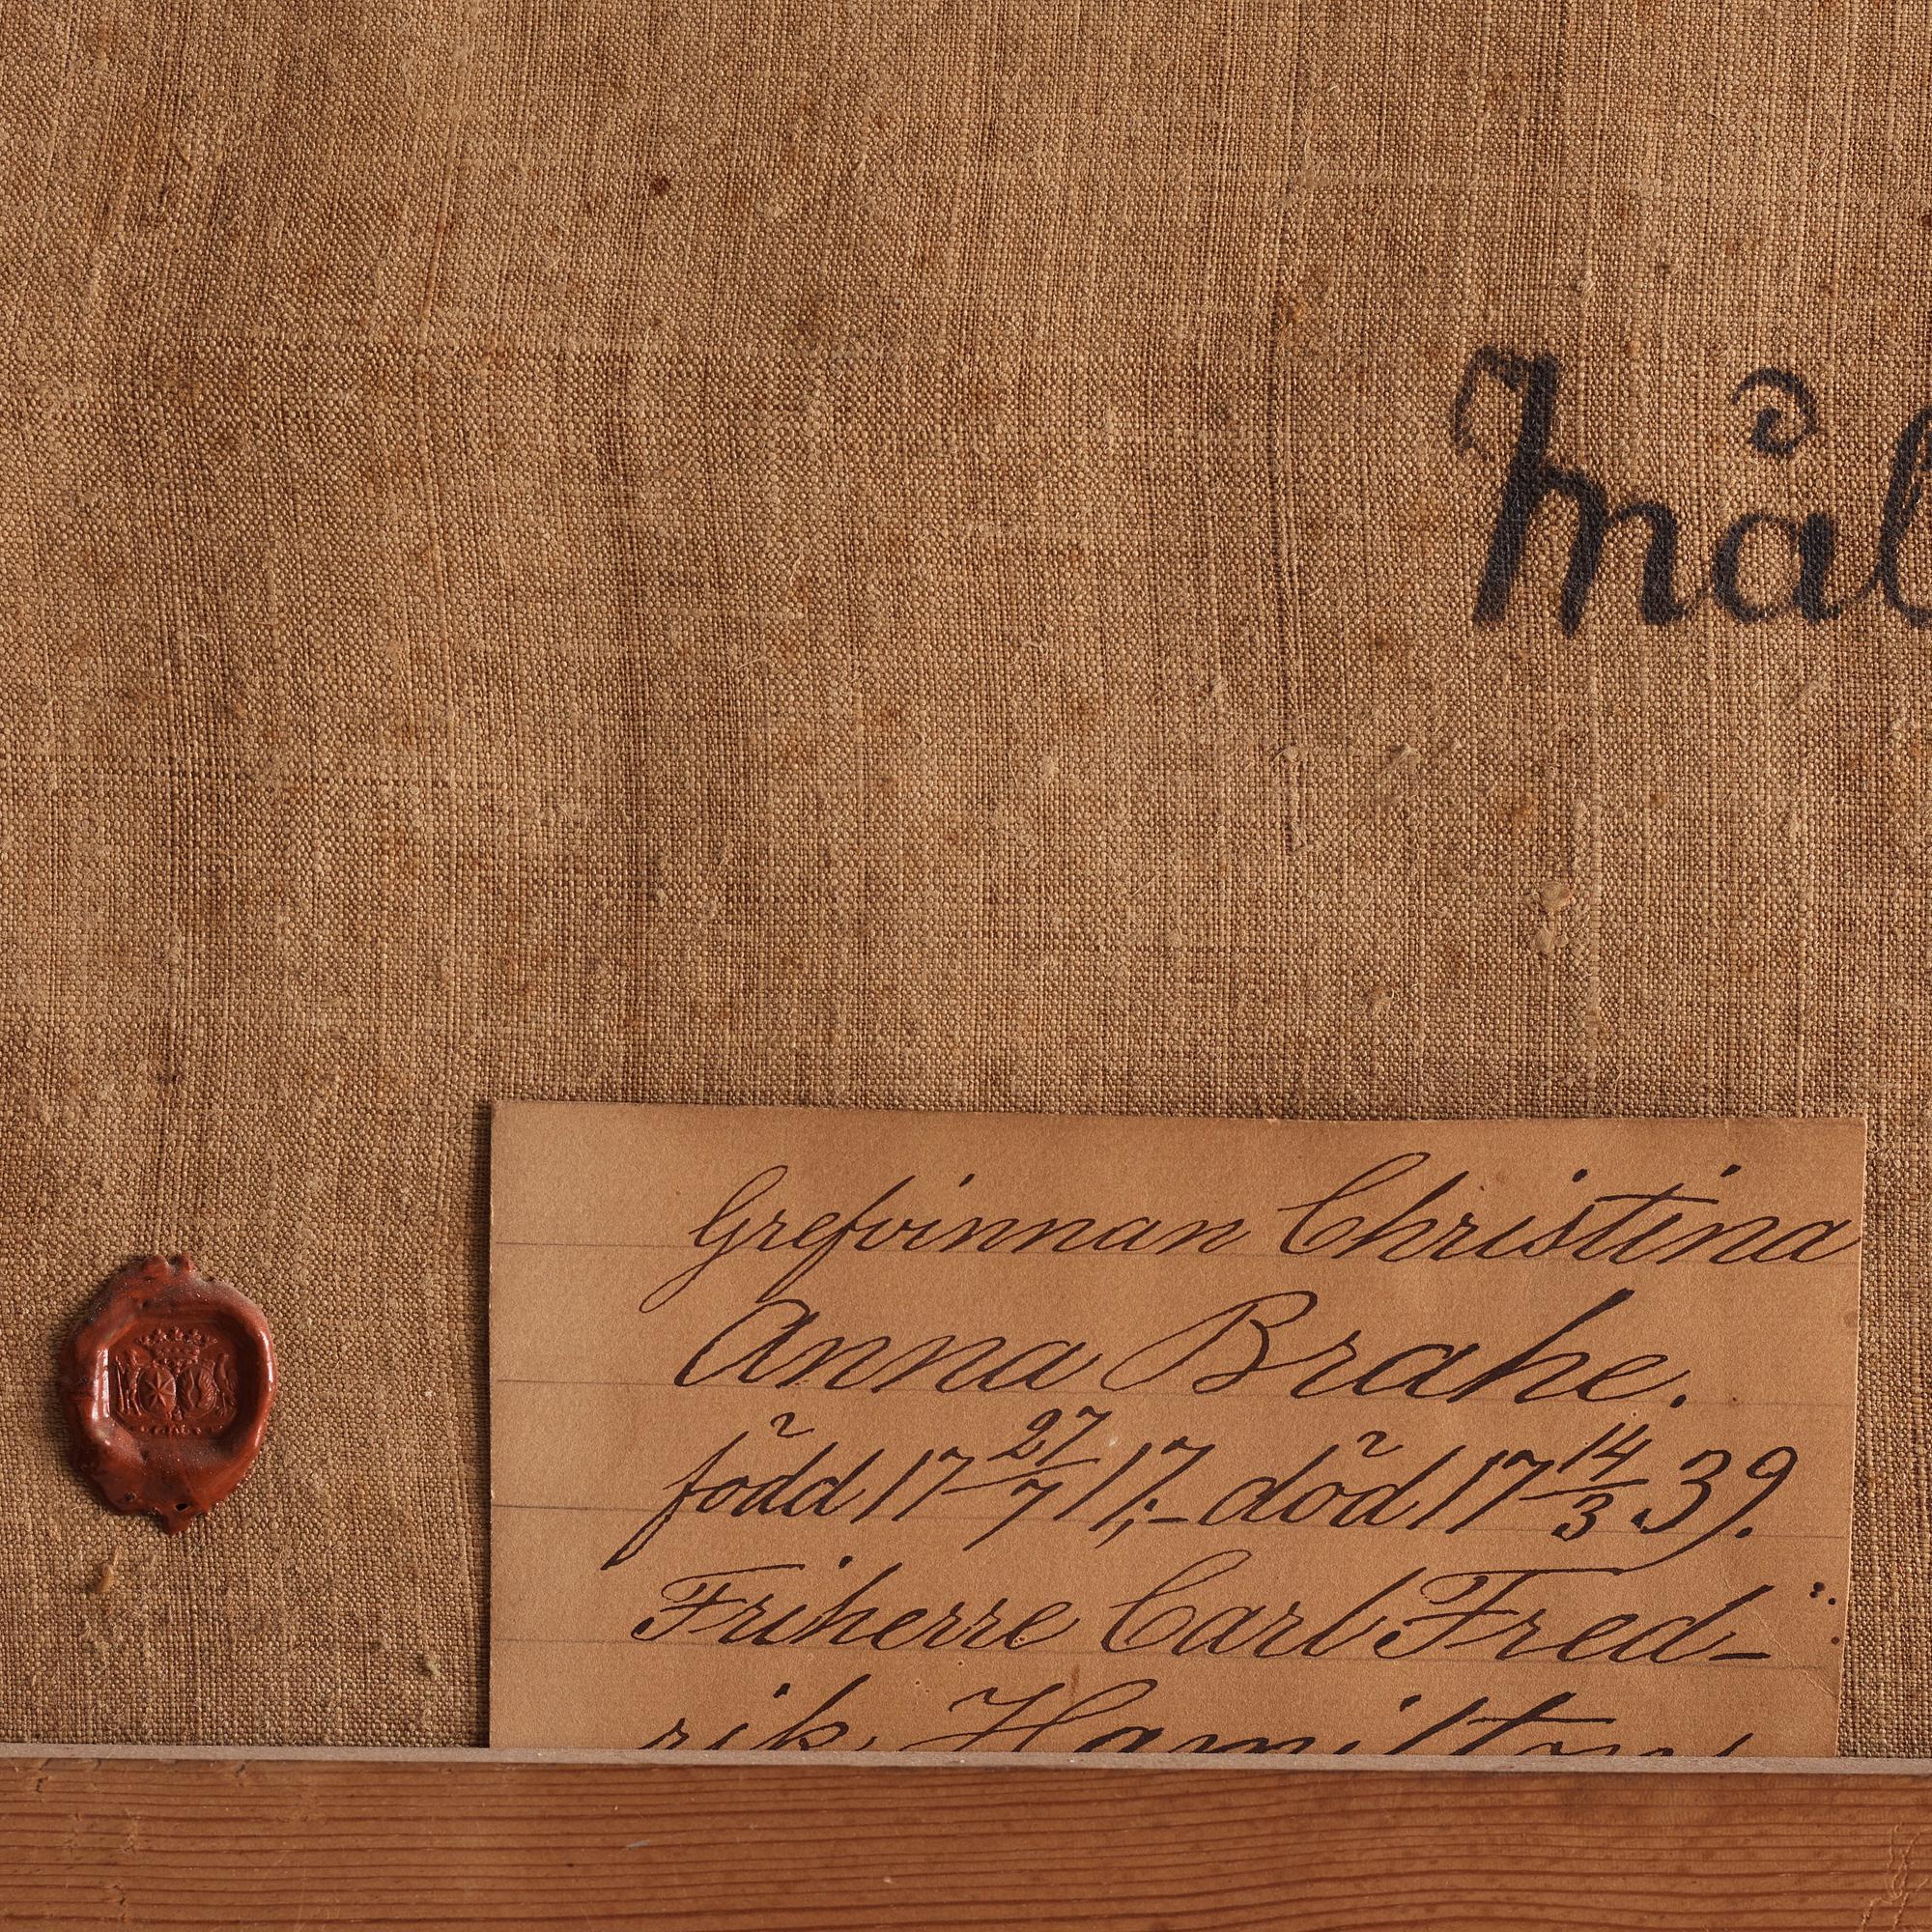 Mål
Grefvinnan Christina
Anna Brahe.
född 17 27/7 17,- död 17 14/3 39.
Friherre Carl Fred-
rik Hamiltons